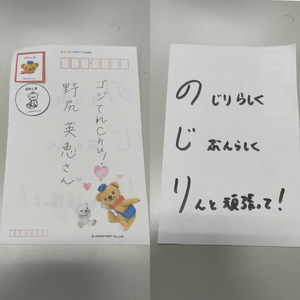 ゴジてれChu!
野尻 英恵さん
のじりらしく
じぶんらしく
りんと頑張って!